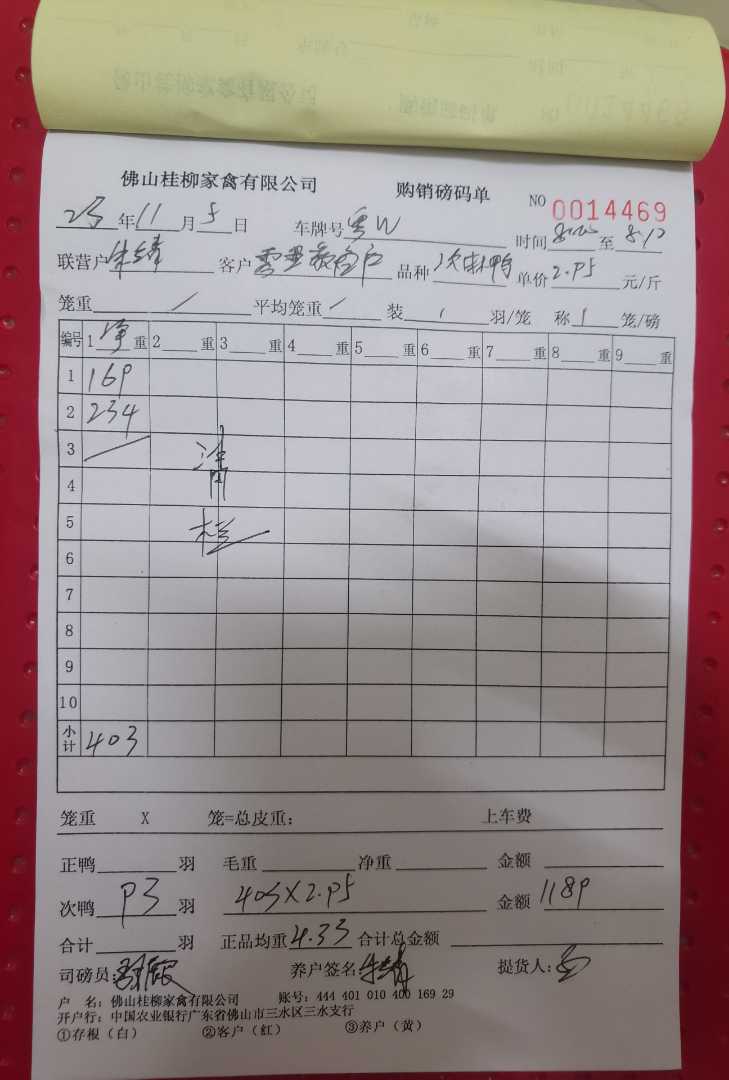 佛山桂柳家禽有限公司 购销磅码单 NO 0014469
23年11月5日 车牌号粤W 时间 至
联营户 客户零星散客户 品种次肉鸭 单价2.95元/斤
笼重 / 平均笼重 / 装 羽/笼 称1笼/磅
编号 1净重 2重 3重 4重 5重 6重 7重 8重 9重
1 169
2 234
3 清
4 阴
5 栏
6
7
8
9
10
小计 403
笼重 X 笼=总皮重: 上车费
正鸭 羽 毛重 净重 金额
次鸭 93 羽 403X2.95 金额 1189
合计 羽 正品均重4.33 合计总金额
司磅员: 养户签名 提货人:
户 名:佛山桂柳家禽有限公司 账号:444 401 010 400 169 29
开户行:中国农业银行广东省佛山市三水区三水支行
①存根(白) ②客户(红) ③养户(黄)